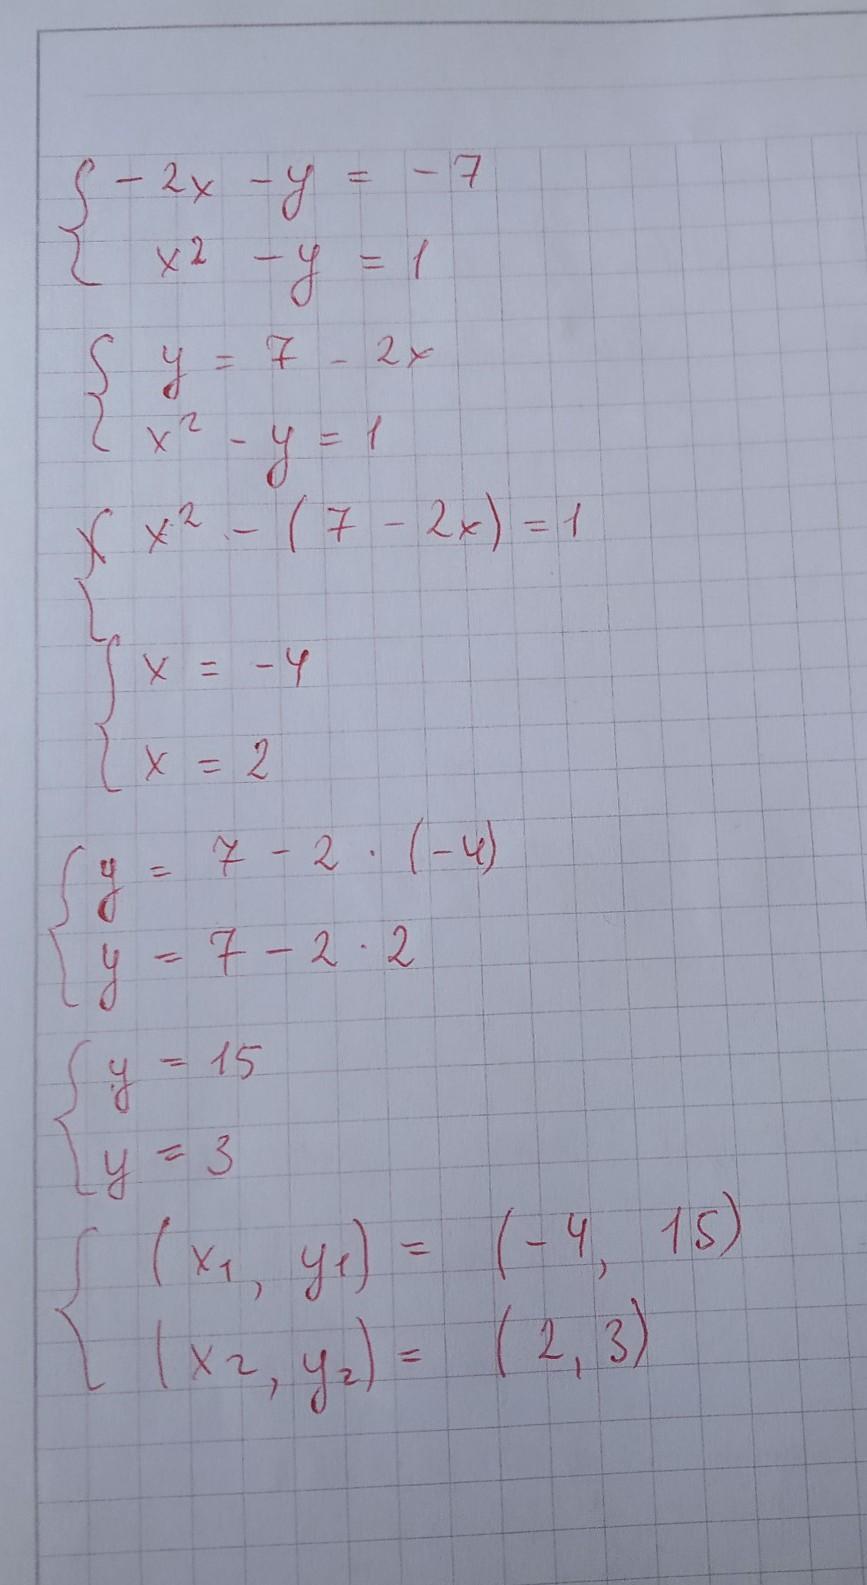 { -2x - y = -7
x2 - y = 1
{ y = 7 - 2x
x² - y = 1
{ x² - (7 - 2x) = 1
{ x = -4
x = 2
{ y = 7 - 2 · (-4)
y = 7 - 2 · 2
{ y = 15
y = 3
{ (x1, y1) = (-4, 15)
(x2, y2) = (2, 3)